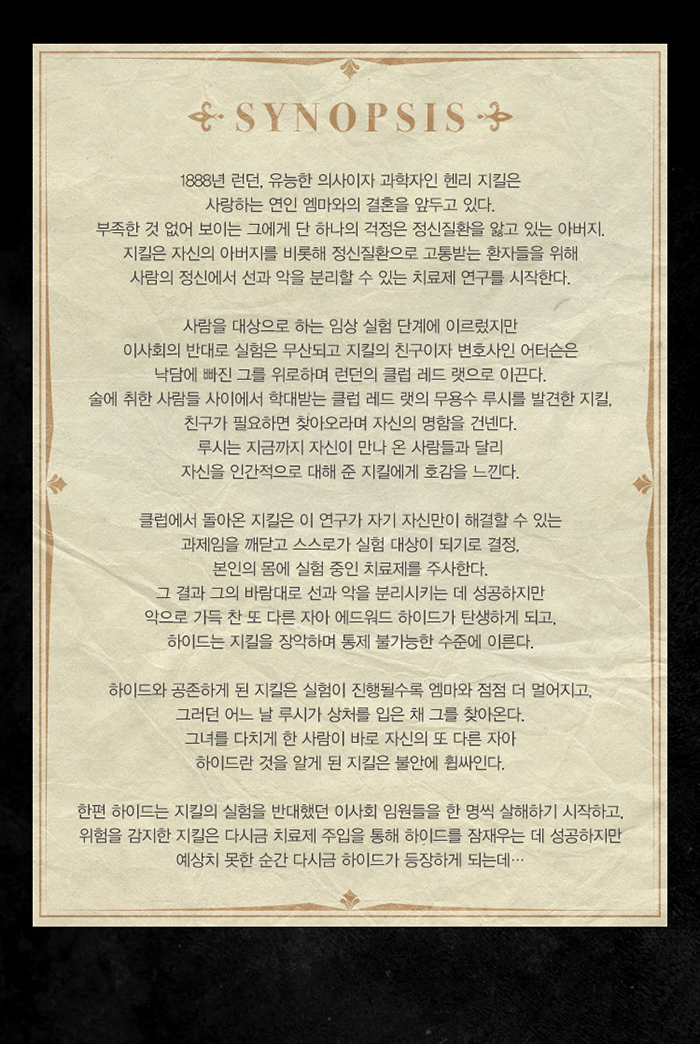 SYNOPSIS
1888년 런던, 유능한 의사이자 과학자인 헨리 지킬은
사랑하는 연인 엠마와의 결혼을 앞두고 있다.
부족한 것 없어 보이는 그에게 단 하나의 걱정은 정신질환을 앓고 있는 아버지.
지킬은 자신의 아버지를 비롯해 정신질환으로 고통받는 환자들을 위해
사람의 정신에서 선과 악을 분리할 수 있는 치료제 연구를 시작한다.
사람을 대상으로 하는 임상 실험 단계에 이르렀지만
이사회의 반대로 실험은 무산되고 지킬의 친구이자 변호사인 어터슨은
낙담에 빠진 그를 위로하며 런던의 클럽 레드 랫으로 이끈다.
술에 취한 사람들 사이에서 학대받는 클럽 레드 랫의 무용수 루시를 발견한 지킬,
친구가 필요하면 찾아오라며 자신의 명함을 건넨다.
루시는 지금까지 자신이 만나 온 사람들과 달리
자신을 인간적으로 대해 준 지킬에게 호감을 느낀다.
클럽에서 돌아온 지킬은 이 연구가 자기 자신만이 해결할 수 있는
과제임을 깨닫고 스스로가 실험 대상이 되기로 결정,
본인의 몸에 실험 중인 치료제를 주사한다.
그 결과 그의 바람대로 선과 악을 분리시키는 데 성공하지만
악으로 가득 찬 또 다른 자아 에드워드 하이드가 탄생하게 되고,
하이드는 지킬을 장악하며 통제 불가능한 수준에 이른다.
하이드와 공존하게 된 지킬은 실험이 진행될수록 엠마와 점점 더 멀어지고,
그러던 어느 날 루시가 상처를 입은 채 그를 찾아온다.
그녀를 다치게 한 사람이 바로 자신의 또 다른 자아
하이드란 것을 알게 된 지킬은 불안에 휩싸인다.
한편 하이드는 지킬의 실험을 반대했던 이사회 임원들을 한 명씩 살해하기 시작하고,
위험을 감지한 지킬은 다시금 치료제 주입을 통해 하이드를 잠재우는 데 성공하지만
예상치 못한 순간 다시금 하이드가 등장하게 되는데…